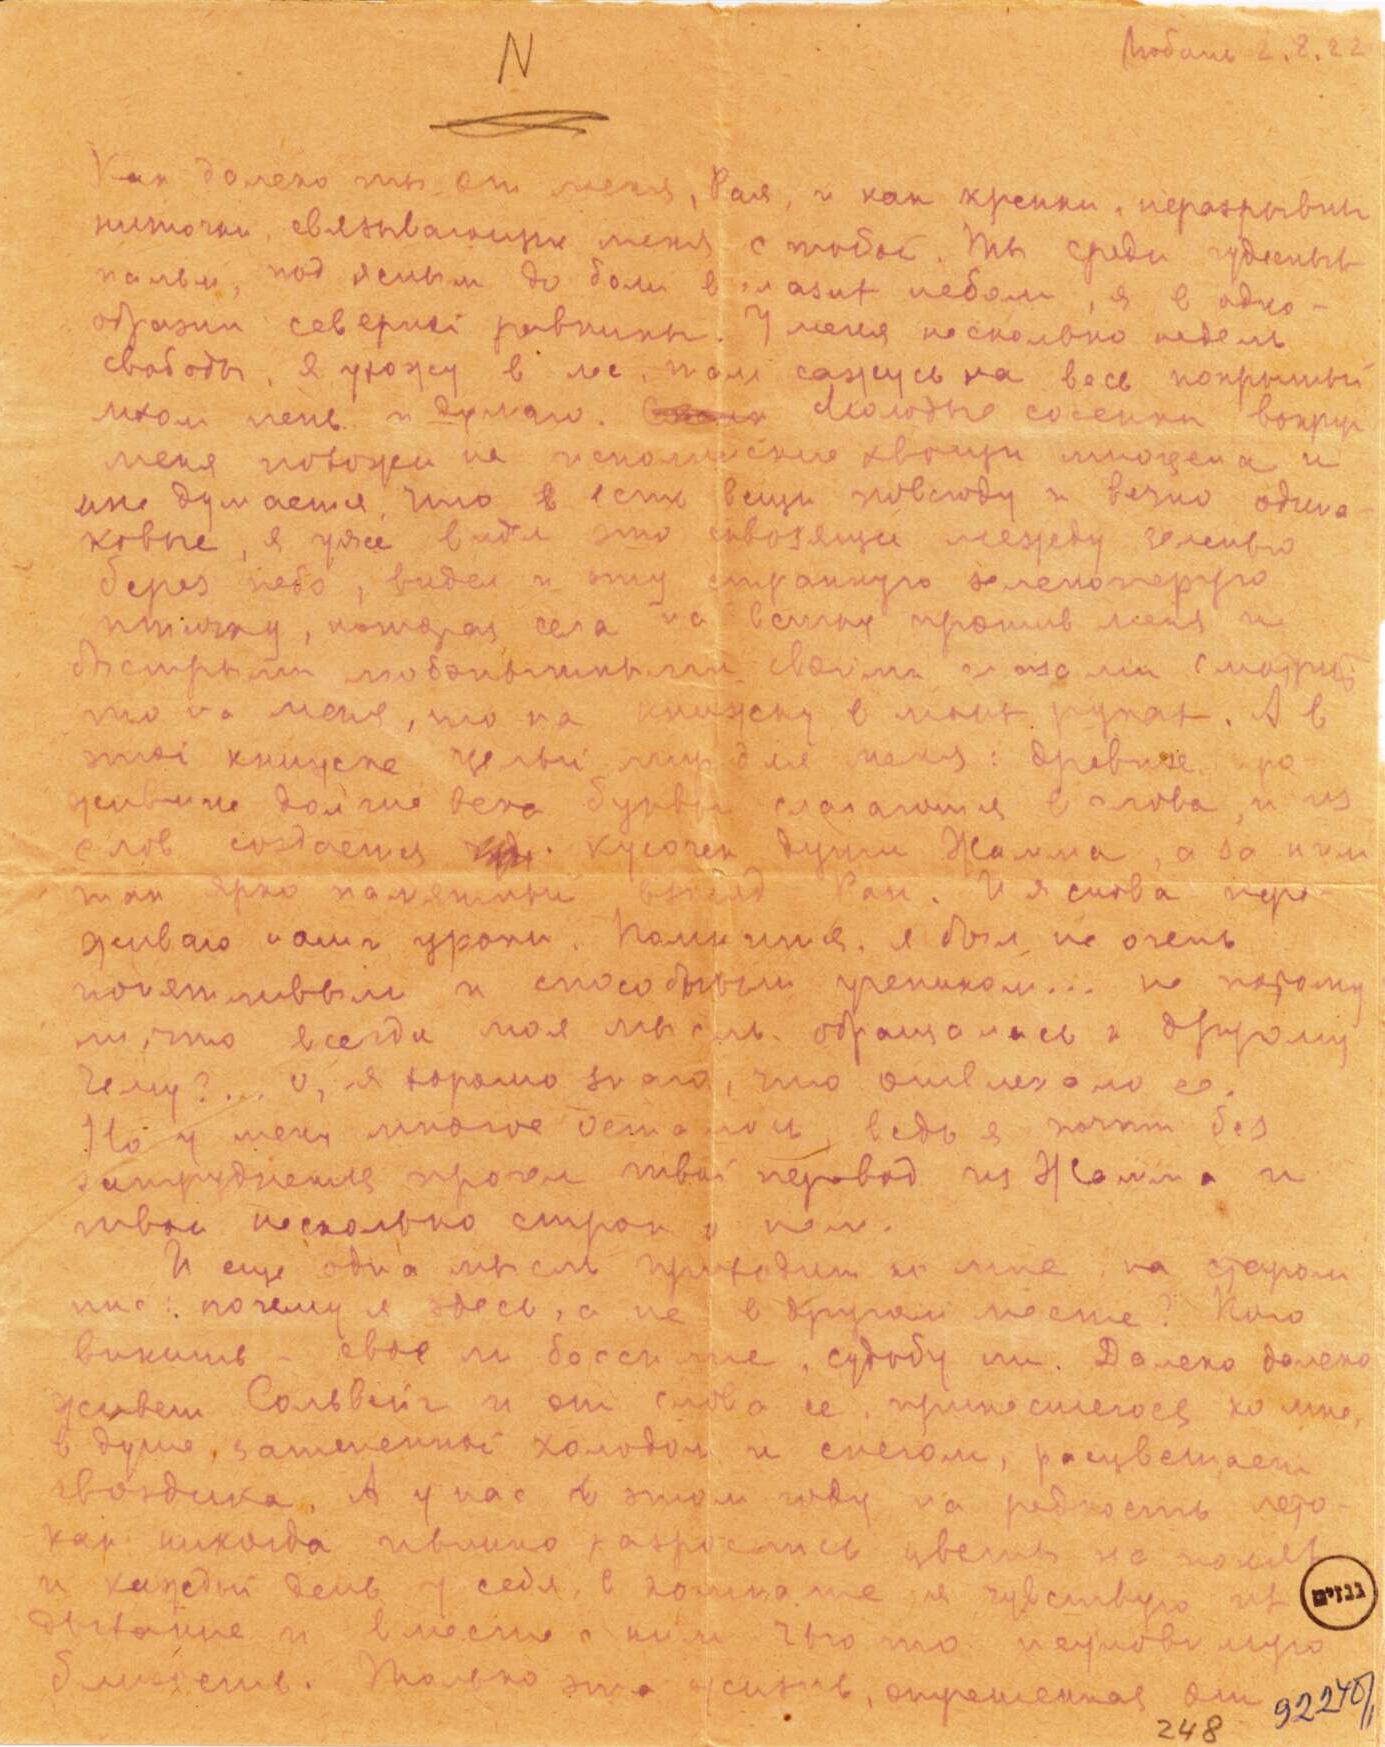 N
Любань 2.8.22
Как далеко ты от меня, Рая, и как крепки, неразрывны
ниточки, связывающие меня с тобой. Ты среди чудесных
пальм, под ясным до боли в глазах небом, я в одно-
образии северной равнины. У меня несколько недель
свободы, я ухожу в лес, там сажусь на весь покрытый
мхом пень и думаю. Молодые сосенки вокруг
меня похожи на исполинские хвощи миоцена и
мне думается, что есть вещи повсюду и вечно одина-
ковые, я уже видел это сквозящее между зеленью
берез небо, видел и эту странную зеленоперую
птичку, которая села на ветке против меня и
быстрыми любопытными своими глазами смотрит
то на меня, то на книжку в моих руках. А в
этой книжке целый мир для меня: древние, про-
жившие долгие века буквы слагаются в слова, и из
слов создается кусочек души Жамма, а за ним
так ярко памятный взгляд Раи. И я снова пере-
живаю наши уроки. Помнится, я был не очень
понятливым и способным учеником... не потому
ли, что всегда моя мысль обращалась к другому
чему?... О, я хорошо знаю, что отвлекало ее.
Но у меня многое осталось, ведь я почти без
затруднения прочел твой перевод из Жамма и
твои несколько строк о нем.
И еще одна мысль приходит ко мне, на старом
пне: почему я здесь, а не в другом месте? Кого
винить - свое ли бессилие, судьбу ли. Далеко далеко
живет Сольвейг и от слова ее, принесшегося ко мне,
в душе, затененной холодом и снегом, расцветает
гвоздика. А у нас в этом году на редкость лето -
как никогда пышно разрослись цветы на полях
и каждый день у себя в комнате я чувствую их
дыхание и вместе с ним чью то неуловимую
близость. Только эта жизнь, отрешенная от
גנזים
92240/1
248